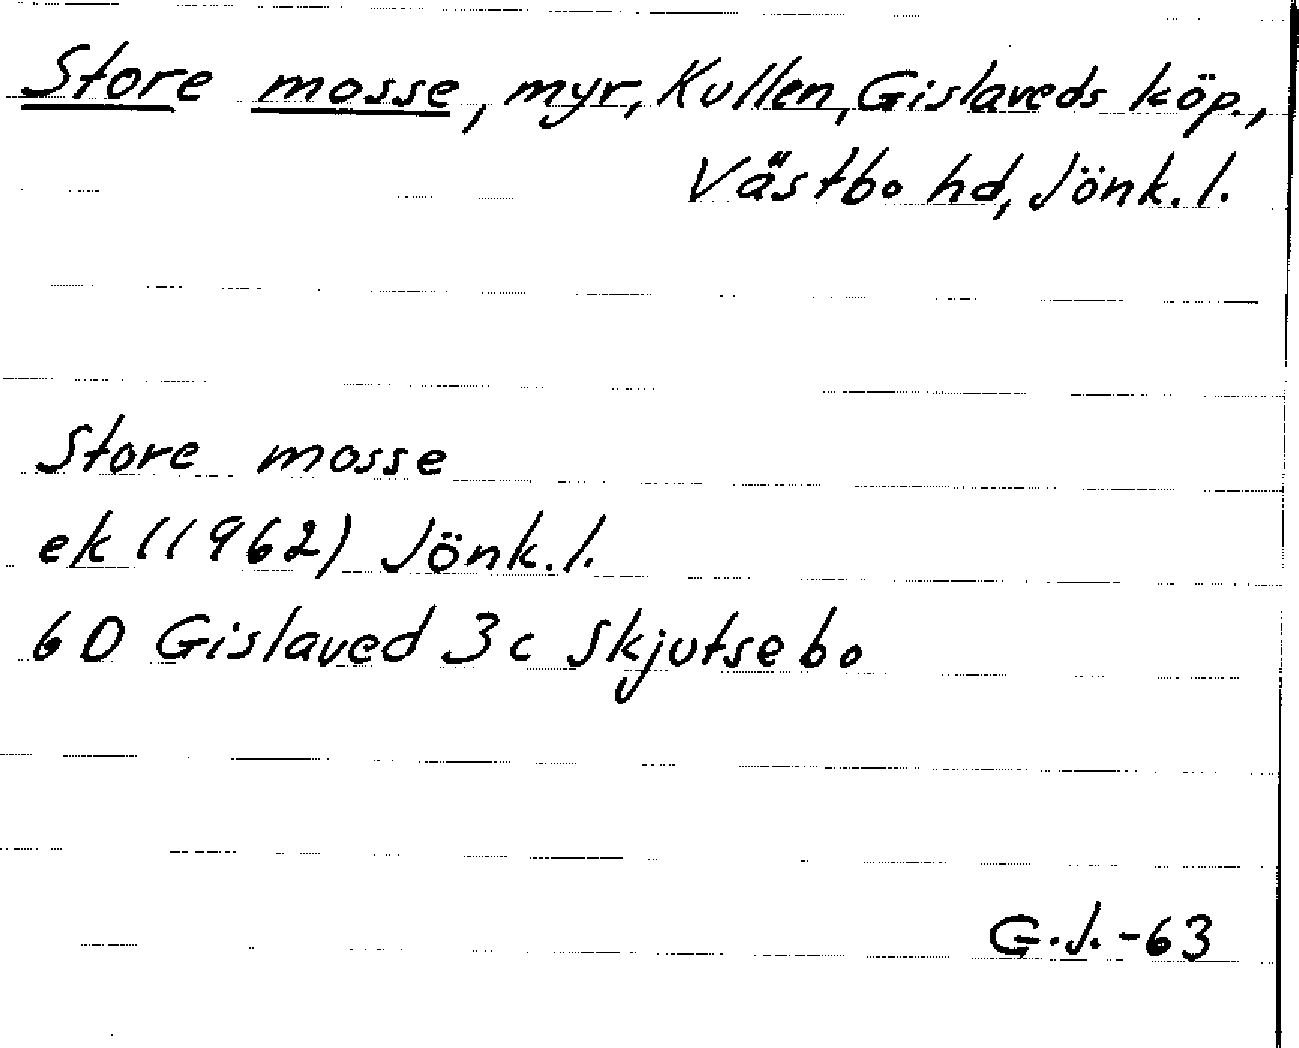 Store mosse, myr, Kullen, Gislaveds köp.,
Västbo hd, Jönk.l.
Store mosse
ek (1962) Jönk.l.
6D Gislaved 3c Skjutsebo
G.J.-63